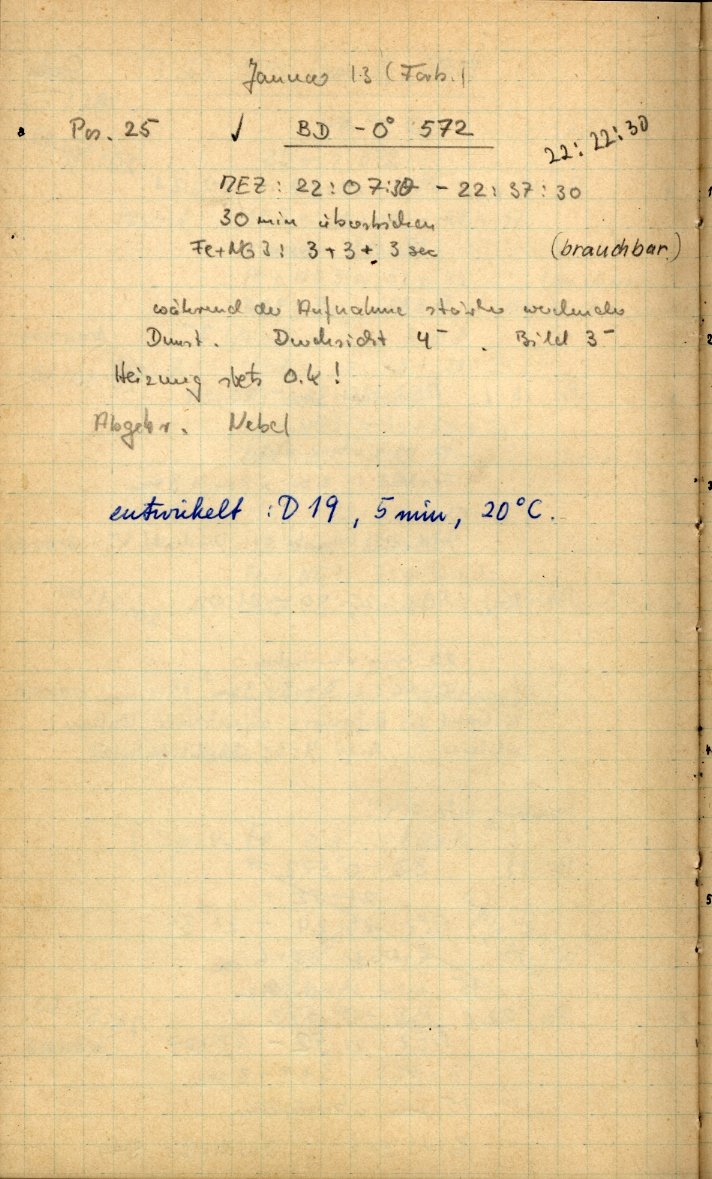 Januar 13 (Forts.)
Pos. 25 ✓ BD -0° 572
22:22:30
MEZ: 22:07:30 - 22:37:30
30 min überstrichen
Fe+NG3: 3+3+3 sec (brauchbar)
während der Aufnahme starker werdender
Dunst. Durchsicht 4⁻. Bild 3⁻
Heizung stets 0.4!
Abgebr. Nebel
entwickelt: D19, 5 min, 20°C.